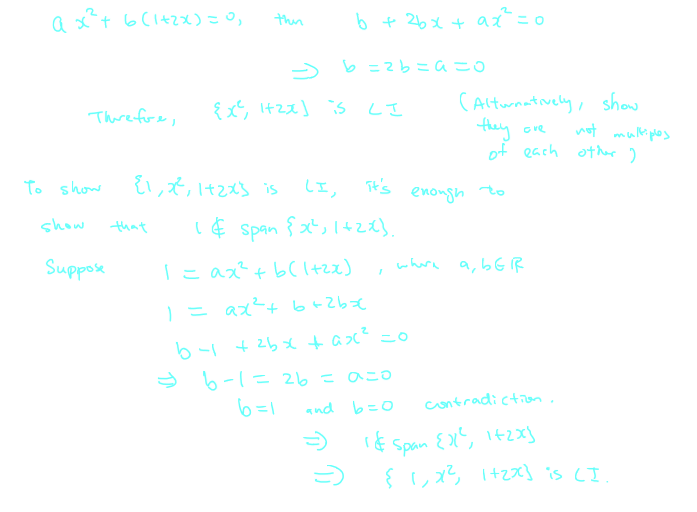 a x² + b(1+2x) = 0, then b + 2bx + ax² = 0
⇒ b = 2b = a = 0
Therefore, {x², 1+2x} is LI (Alternatively, show
they are not multiples
of each other)
To show {1, x², 1+2x} is LI, it's enough to
show that 1 ∉ span {x², 1+2x}.
Suppose 1 = ax² + b(1+2x), where a, b ∈ ℝ
1 = ax² + b + 2bx
b-1 + 2bx + ax² = 0
⇒ b-1 = 2b = a = 0
b=1 and b=0 contradiction.
⇒ 1 ∉ span {x², 1+2x}
⇒ {1, x², 1+2x} is LI.